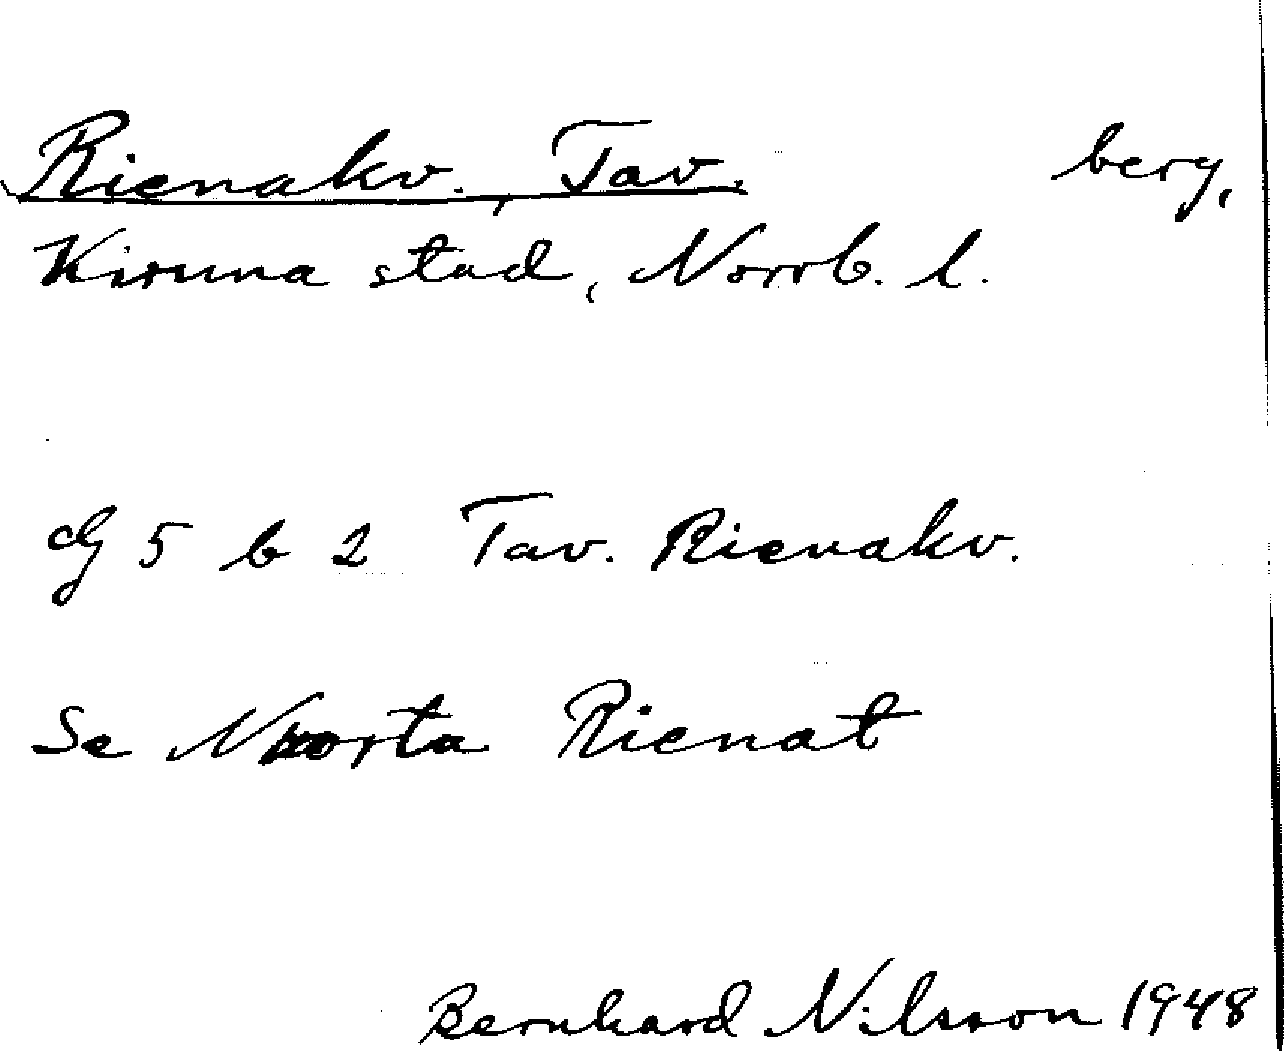 Rienakv., Tav. berg,
Kiruna stad, Norrb. l.
dJ 5 b 2 Tav. Rienakv.
Se Nuorta Rienat
Bernhard Nilsson 1948